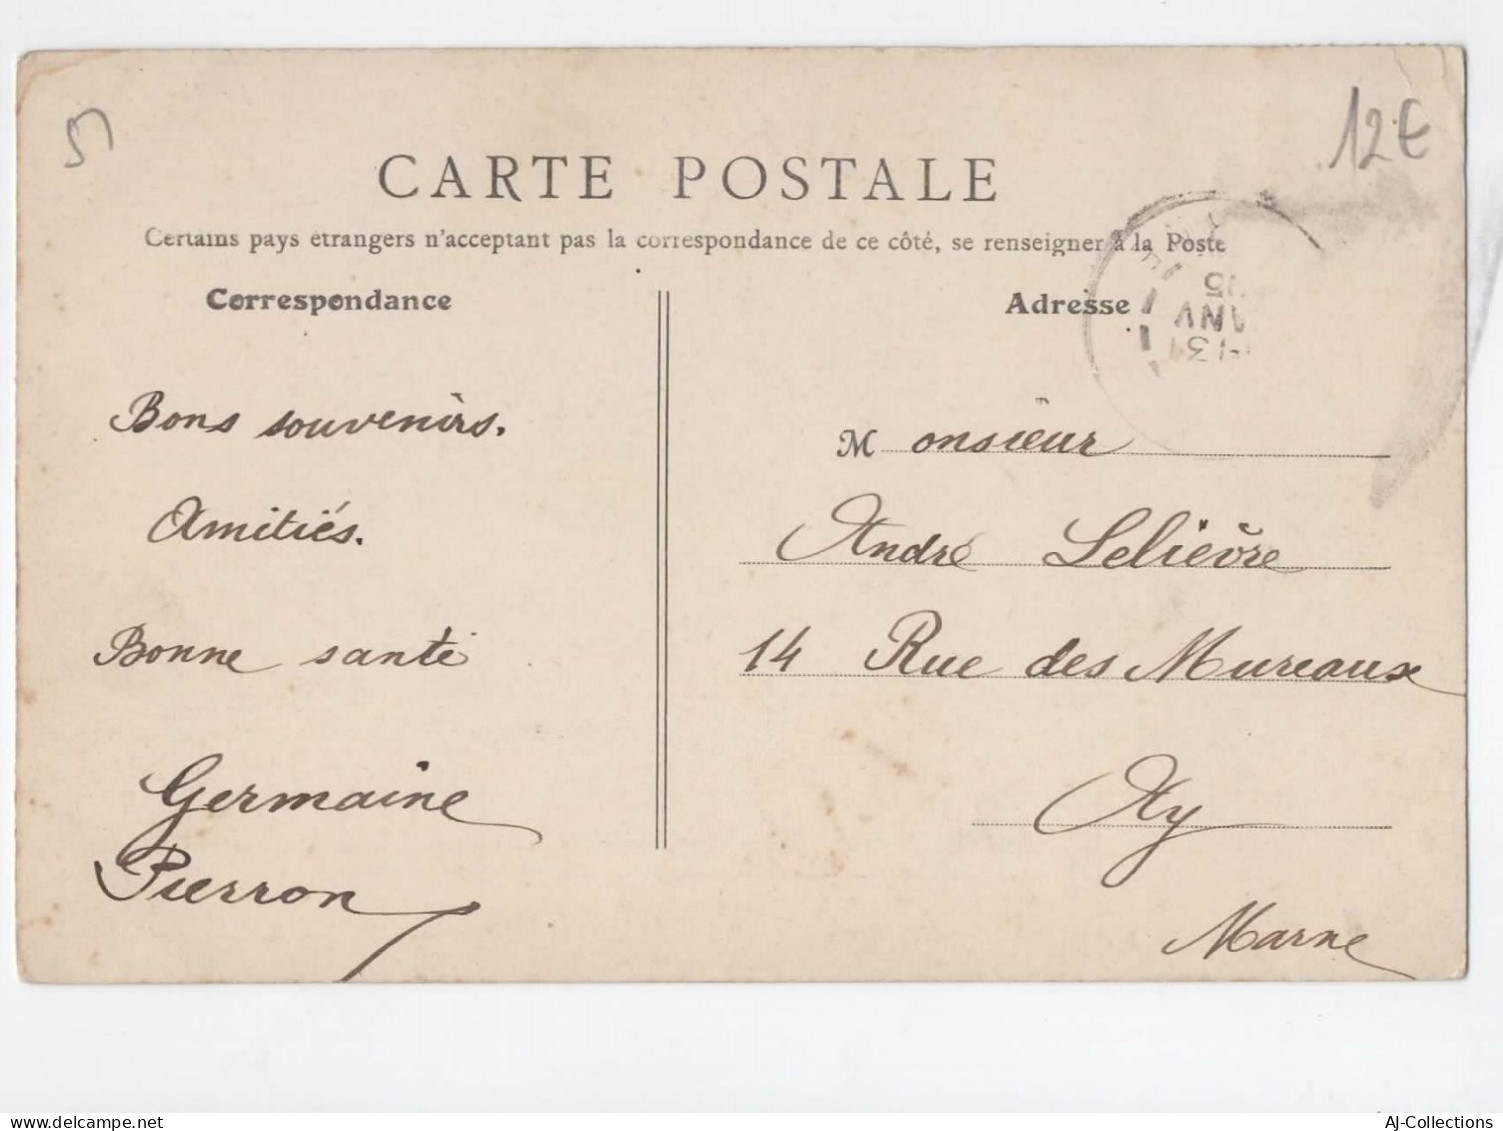 51
12€
CARTE POSTALE
Certains pays étrangers n'acceptant pas la correspondance de ce côté, se renseigner à la Poste
Correspondance
Adresse
Bons souvenirs.
Amitiés.
Bonne santé
Germaine
Pierron
Monsieur
André Lelièvre
14 Rue des Mureaux
Ay
Marne
AJ-Collections